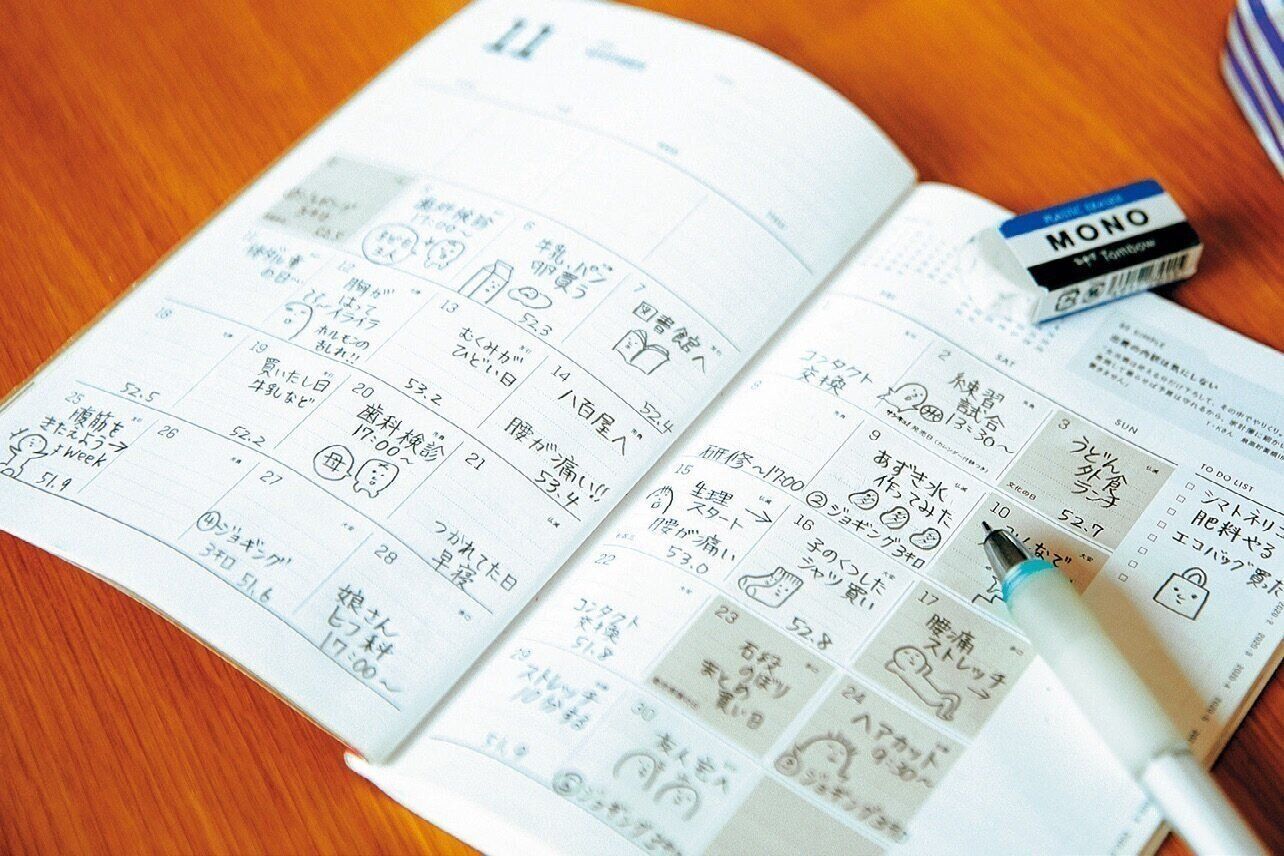 11
歯科検診
17:00〜
6
牛乳、パン
卵買う
52.3
7
図書館へ
52.4
12
胸が
はって
イライラ
ホルモンの
53.2
13
むくみが
ひどい日
14
八百屋へ
腰が痛い!!
53.4
18
52.5
19
買いたし日
牛乳など
52.2
20
歯科検診
17:00〜
母
21
つかれてた日
早寝
25
腹筋を
きたえよう→
1 week
51.9
26
④ジョギング
3キロ
51.6
27
28
娘さん
ヒフ科
17:00〜
コンタクト
交換
2
SAT
練習
試合
13:30〜
SUN
3
うどん
外食
ランチ
文化の日
52.7
8
研修〜17:00
9
あずき水、
作ってみた
②ジョギング3キロ
10
みんなで
15
生理
スタート→
腰が痛い
53.0
16
子のくつした
シャツ買い
52.8
17
腰痛
ストレッチ
→
22
コンタクト
交換
51.8
23
石段
のぼり
まとめ
買い日
24
ヘアカット
9:30〜
29
ストレッチ
10分する
51.9
30
TO DO LIST
シマトネリ
肥料やる
エコバッグ買った
出費の内訳は気にしない
MONO
Tombow
PLASTIC ERASER